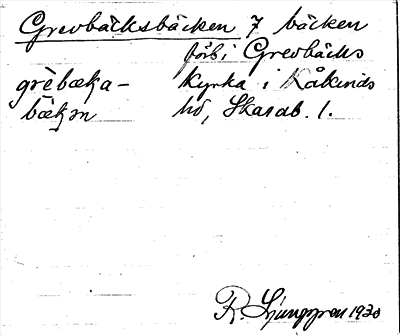 Grevbäcksbäcken 7 bäcken
förbi Grevbäcks
grèbæka- kyrka i Kåkinds
bækən hd, Skarab. l.
R. Ljunggren 1930